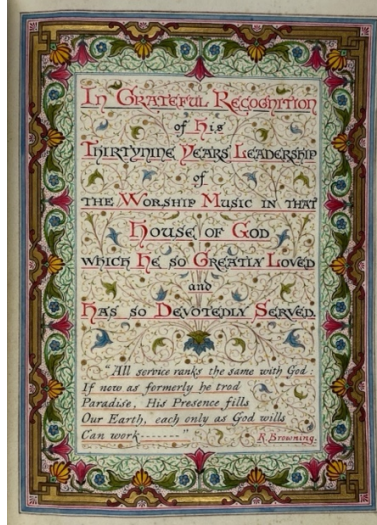 In Grateful Recognition
of His
Thirtynine Years Leadership
of
the Worship Music in that
House of God
which He so Greatly Loved
and
Has so Devotedly Served.
"All service ranks the same with God:
If now as formerly he trod
Paradise, His Presence fills
Our Earth, each only as God wills
Can work-------"
R. Browning.